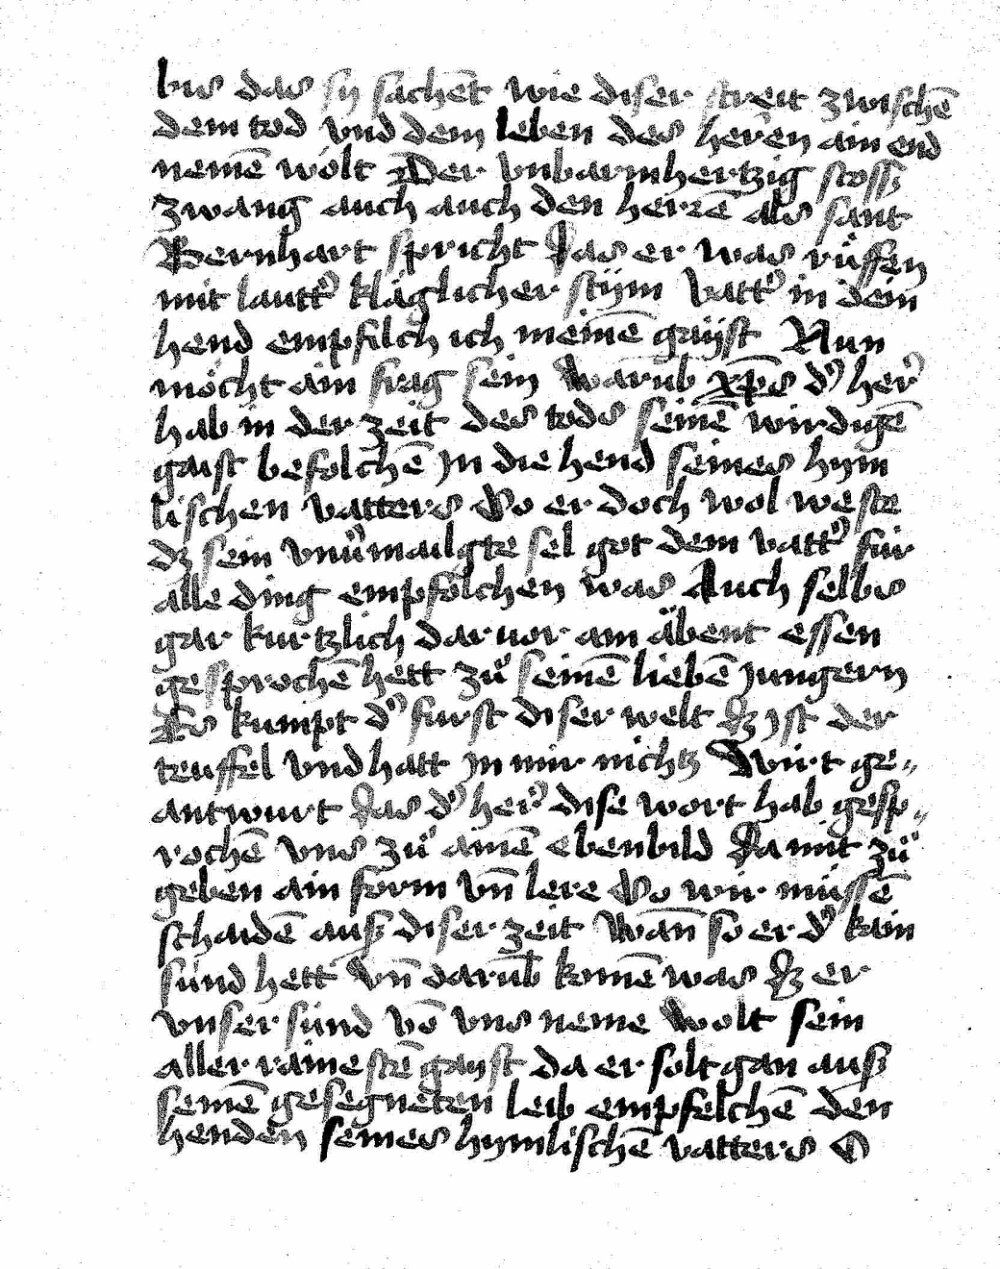 bis das sy sachēt wie diser streit zwischē
dem tod vnd dem leben des herēn ain end
nemē wölt Der vnbarmhertzig stoss
zwang auch auch den herrē als sant
Bernhart spricht das er was rüffen
mit lautt' kläglicher stym Vatt' in dein
hend empfilch ich meinē gaist Nun
möcht ain frag sein Warūb xp̄s d' her'
hab in der zeit des tods seinē wirdigē
gaist befolchē Jn die hend seines hym
lischen vatters So er doch wol weste
dz sein vnūmailgte sel got dem vatt' für
alle ding empfolchen was Auch selbs
gar kurtzlich daruor am äbent essen
gesprochē hett zů seinē liebē Jungern
Es kumpt d' furst diser welt dz Jst der
teuffel vnd hatt Jn mir nichtz Wirt ge„
antwurt das d' her' dise wort hab gesp„
rochē vns zů ainē ebenbild da mit zů
geben ain form vn̄ lere So wir müssē
schaidē auß diser zeit Wan̄ so er d' kain
sünd hett Vn̄ darūb komē was dz er
vnser sünd vō vns neme wolt sein
aller rainestē gaist da er solt gan auß
seinē gesegneten leib empfelchē den
henden seines hymlischē vatters O